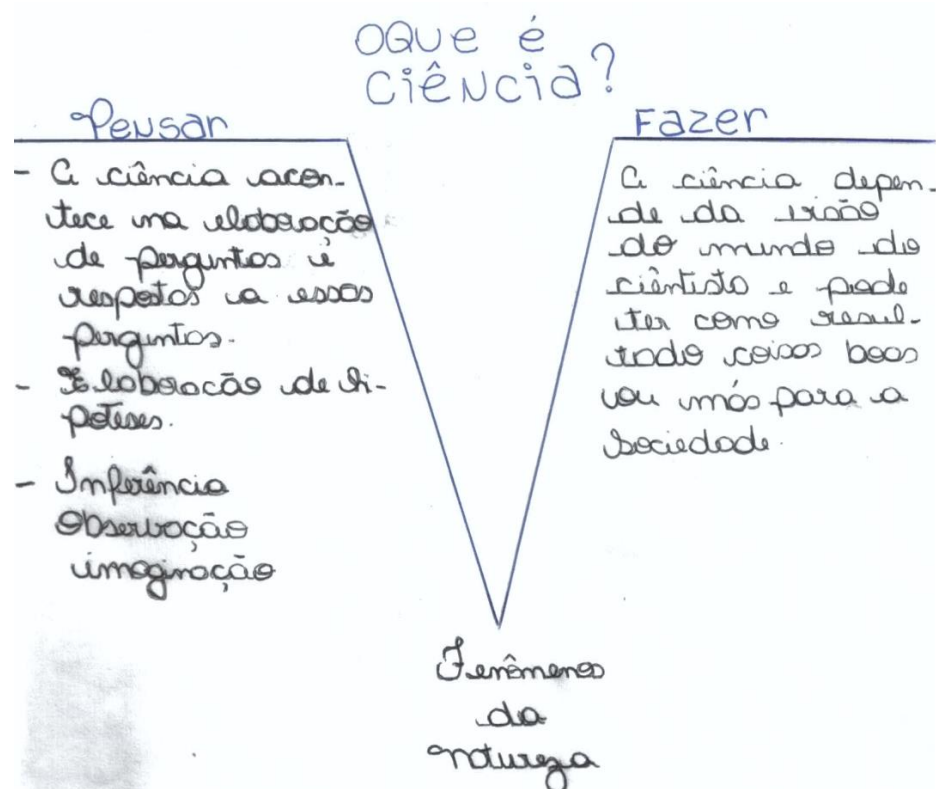 OQue é
Ciência?
Pensar
- A ciência acon-
tece na elaboração
de perguntas e
respostas a essas
perguntas.
- Elaboração de hi-
poteses.
- Inferência
Observação
imaginação
Fazer
A ciência depen-
de da visão
do mundo do
ciêntista e pode
ter como resul-
tado coisas boas
ou más para a
sociedade.
Fenômenos
da
natureza